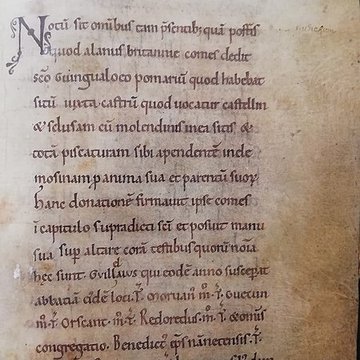 Notũ sit omnibus tam p̃sentib; quã post̃is
quod alanus britannie comes dedit
sc̃o Guingualoeo pomariũ quod habebat
sitũ iuxta castrũ quod uocatur castellin
& selusam cũ molendinis in ea sitis &
totã piscaturam sibi apendentẽ inde
mosinam ꝓ anima sua et parentũ suoꝝ
hanc donationẽ firmauit ipse comes
i capitulo supradicti sc̃i et posuit manu
sua sup altare corã testibus quorũ noĩa
hec sunt Guillaus qui eodem anno suscepit
abbatiã eidẽ loci. T̃. Moruan m̃. T̃. Guecun
m̃. T̃. Orscant m̃. T̃. Redoredus. m̃. & omnis
congregatio. Benedicť ep̃s nannetensis. T̃.